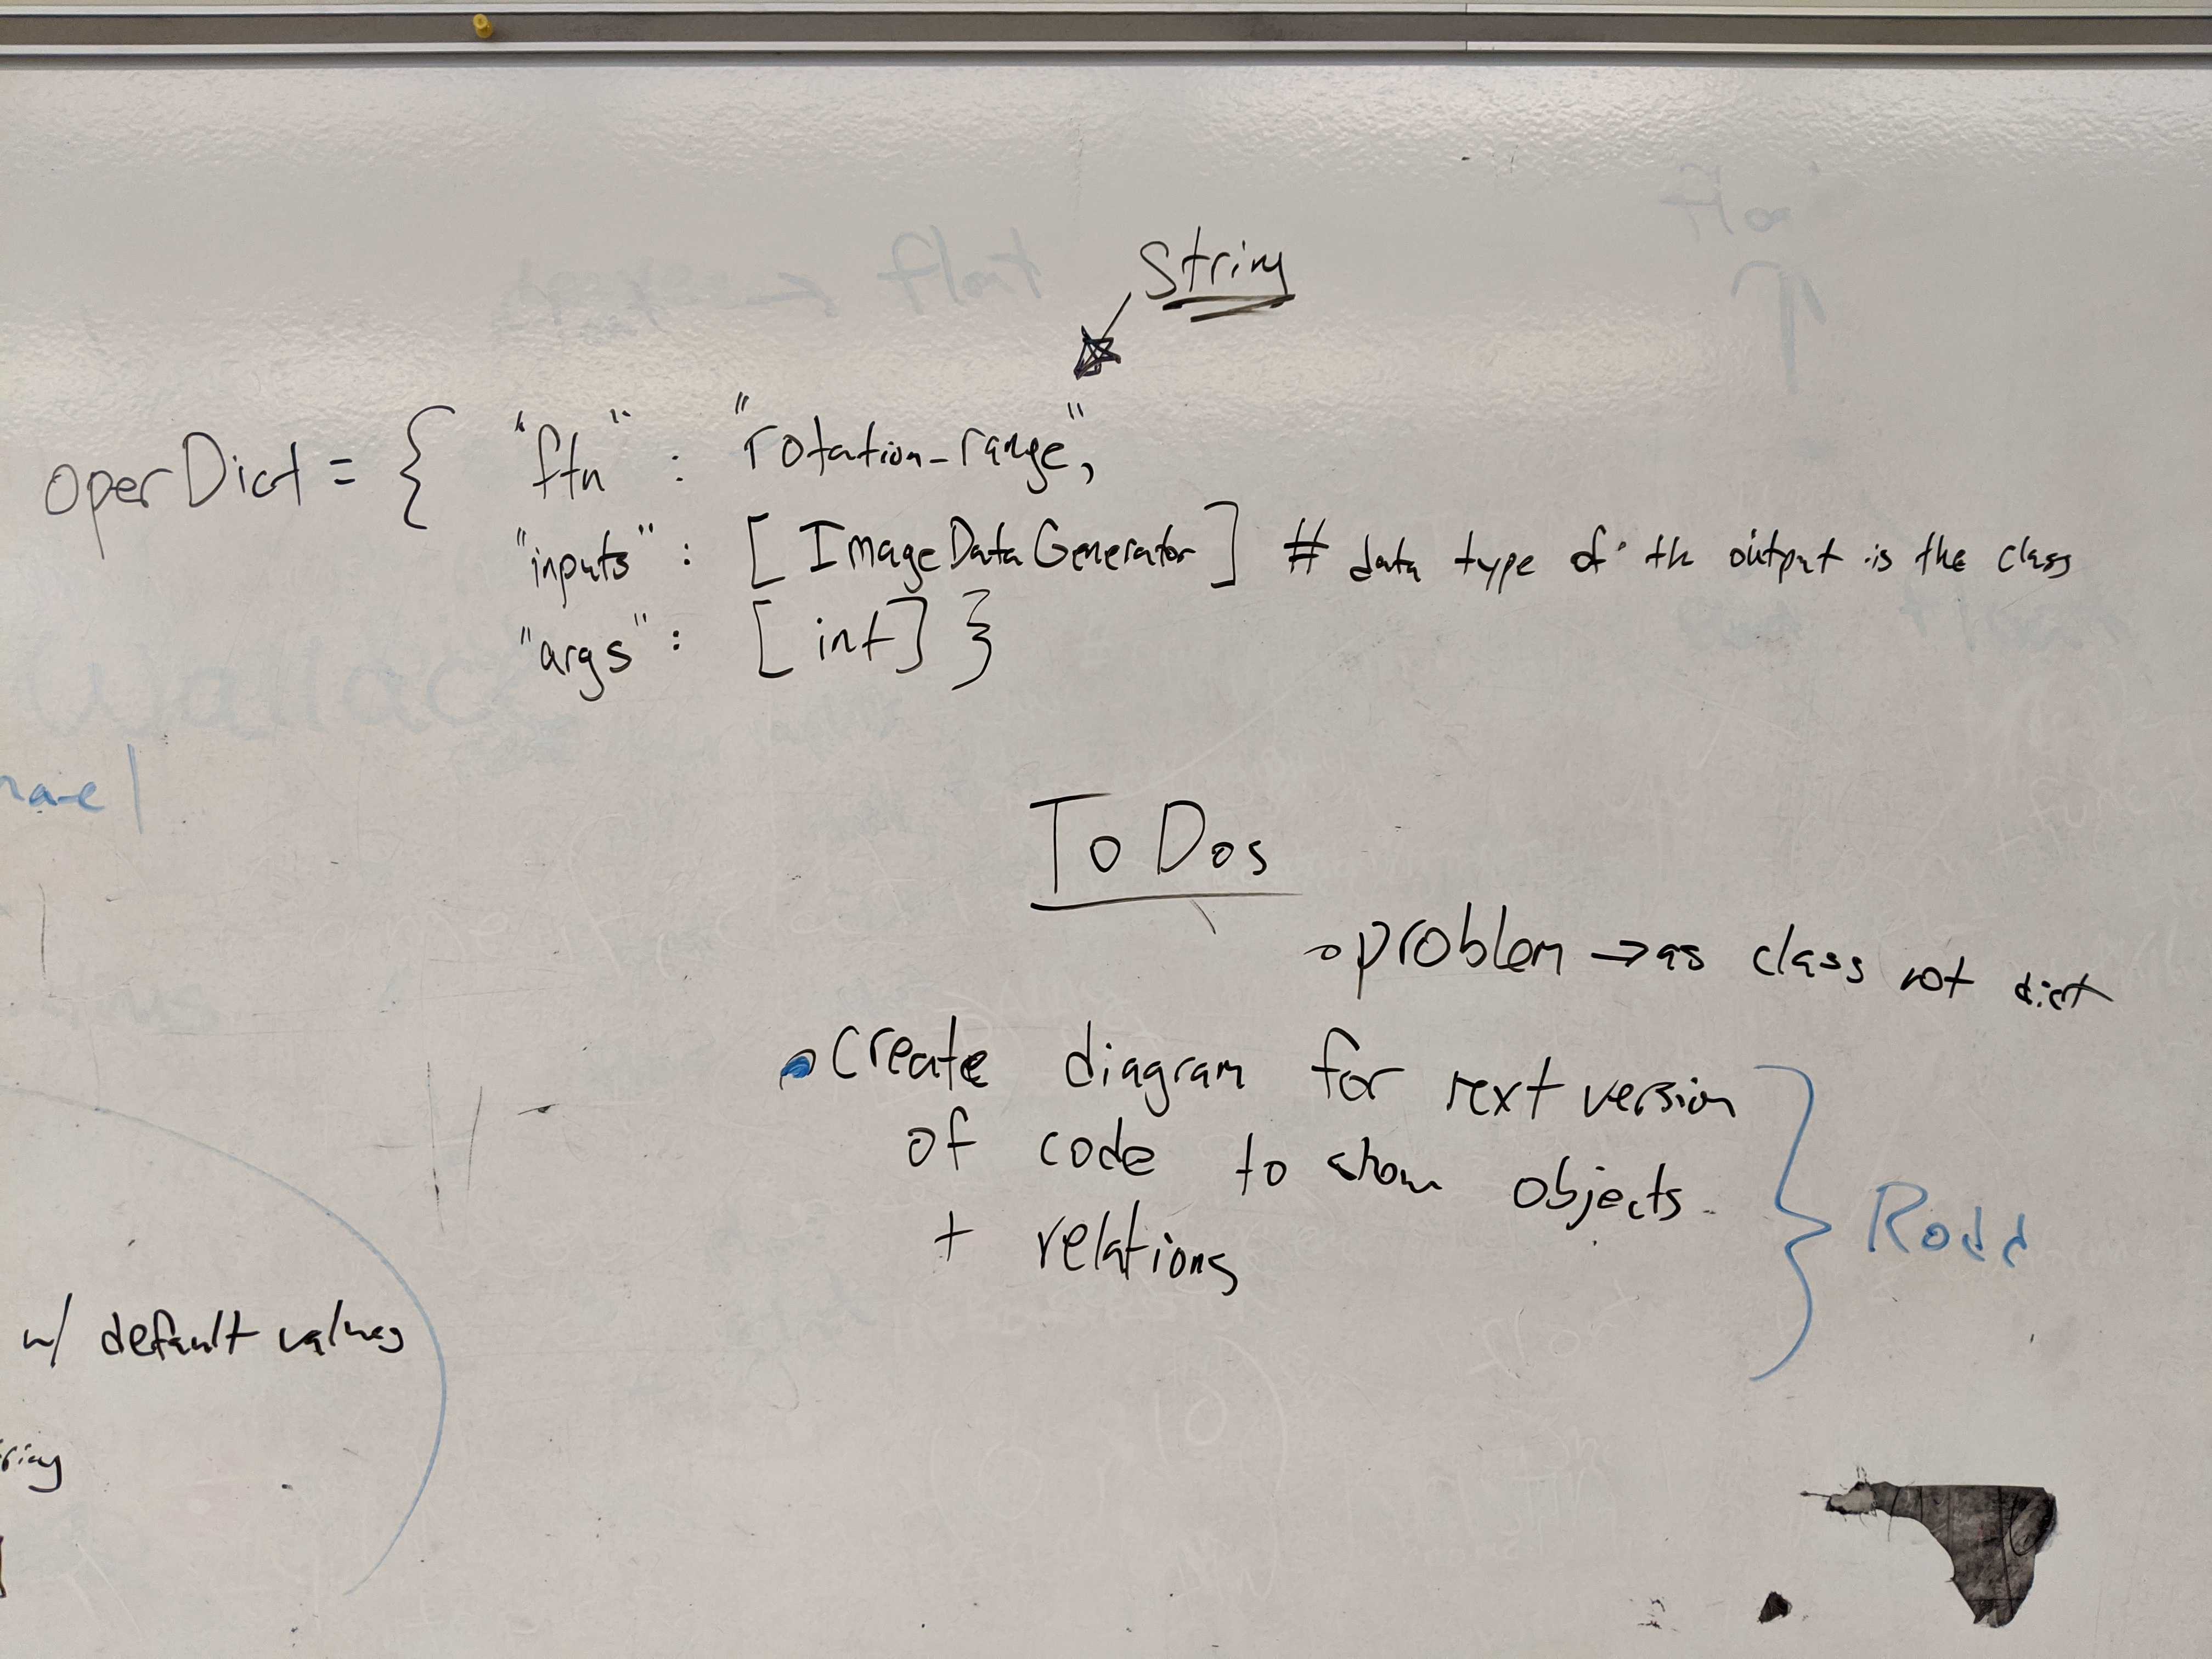 String
operDict = { "ftn" : "rotation_range",
"inputs" : [ImageDataGenerator] # data type of th output is the class
"args" : [int] }
To Dos
problem → as class not dict
create diagram for next version
of code to show objects
+ relations
Rodd
w/ default values